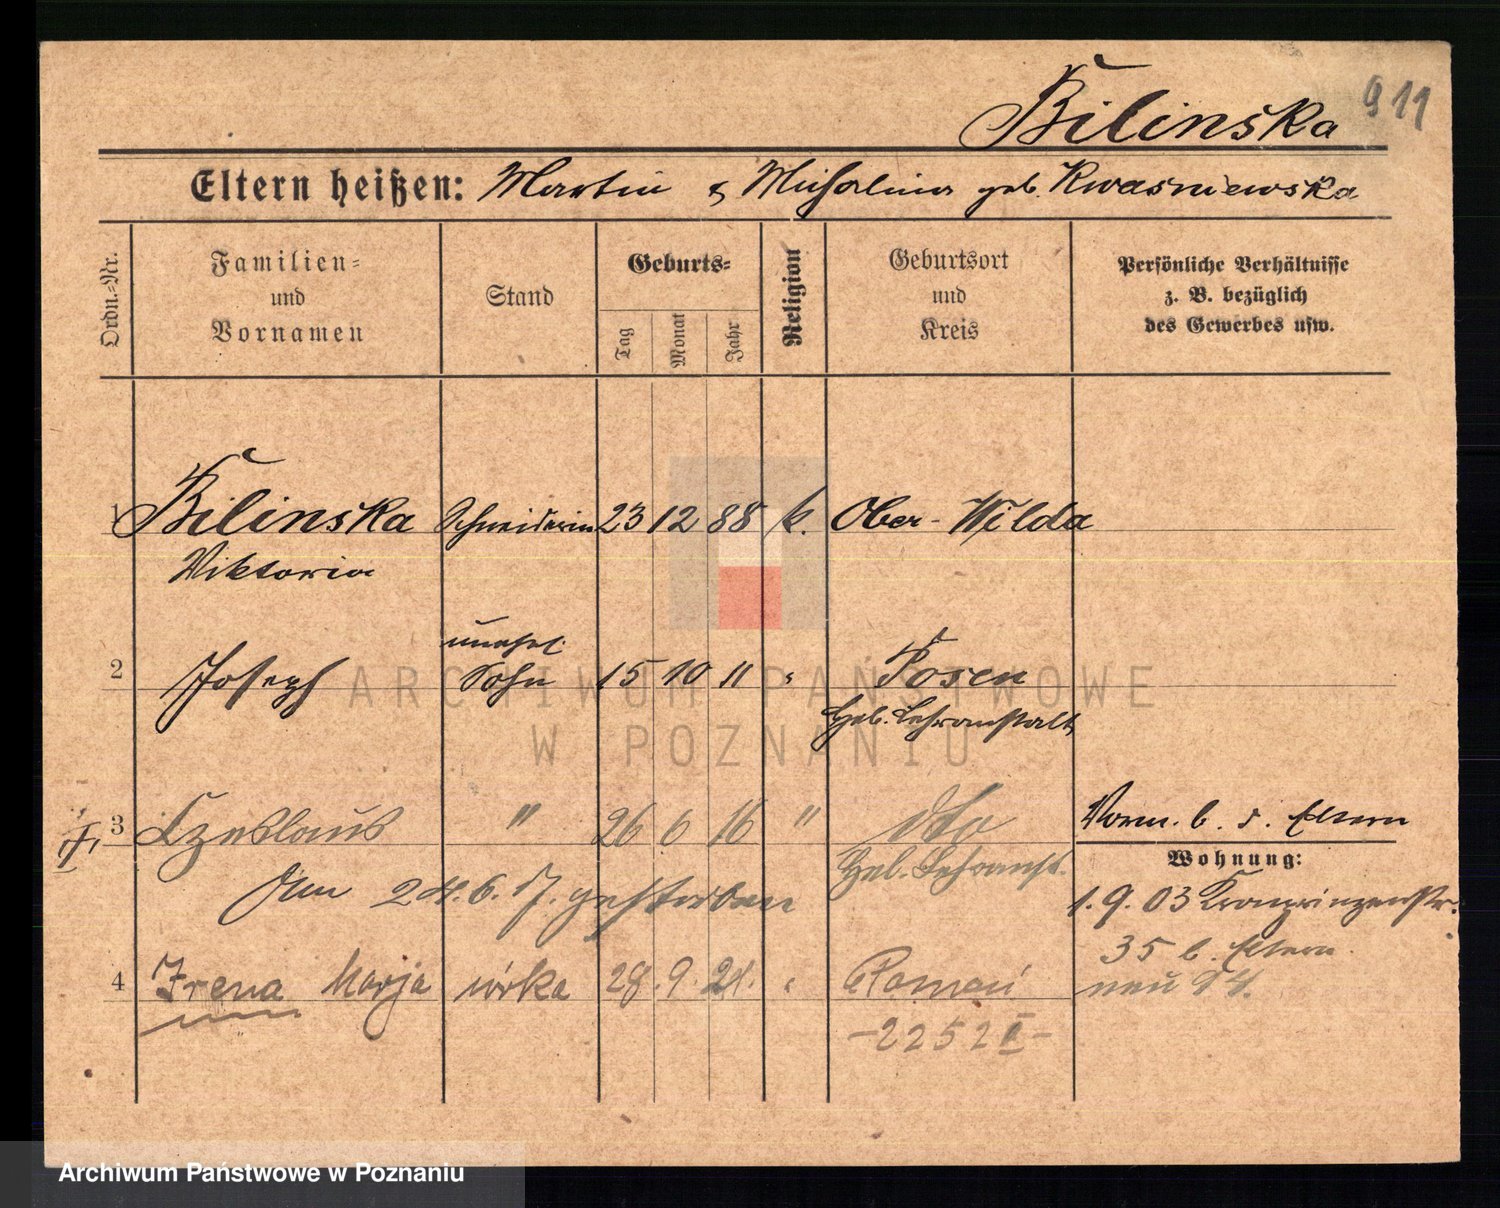 911
Bilinska
Eltern heißen: Martin & Michalina geb. Kwasniewska
Ordn.-Nr.
Familien- und Vornamen
Stand
Geburts-
Tag Monat Jahr
Religion
Geburtsort und Kreis
Persönliche Verhältnisse z. B. bezüglich des Gewerbes usw.
1 Bilinska Schneiderin 23 12 88 k. Ober-Wilda
Viktoria
unehel.
2 Joseph Sohn 15 10 11 " Posen
Heb. Lehranstalt
3 Czeslaus " 26 6 16 " dto
Heb. Lehranst.
Am 24.6.17. gestorben
Vorm. b. d. Eltern
Wohnung:
1.9.03 Kronprinzenstr.
35 b. Eltern.
neu 94.
4 Irena Marja córka 28. 9. 21. " Poznań
-2252 II-
ARCHIWUM PAŃSTWOWE
W POZNANIU
Archiwum Państwowe w Poznaniu